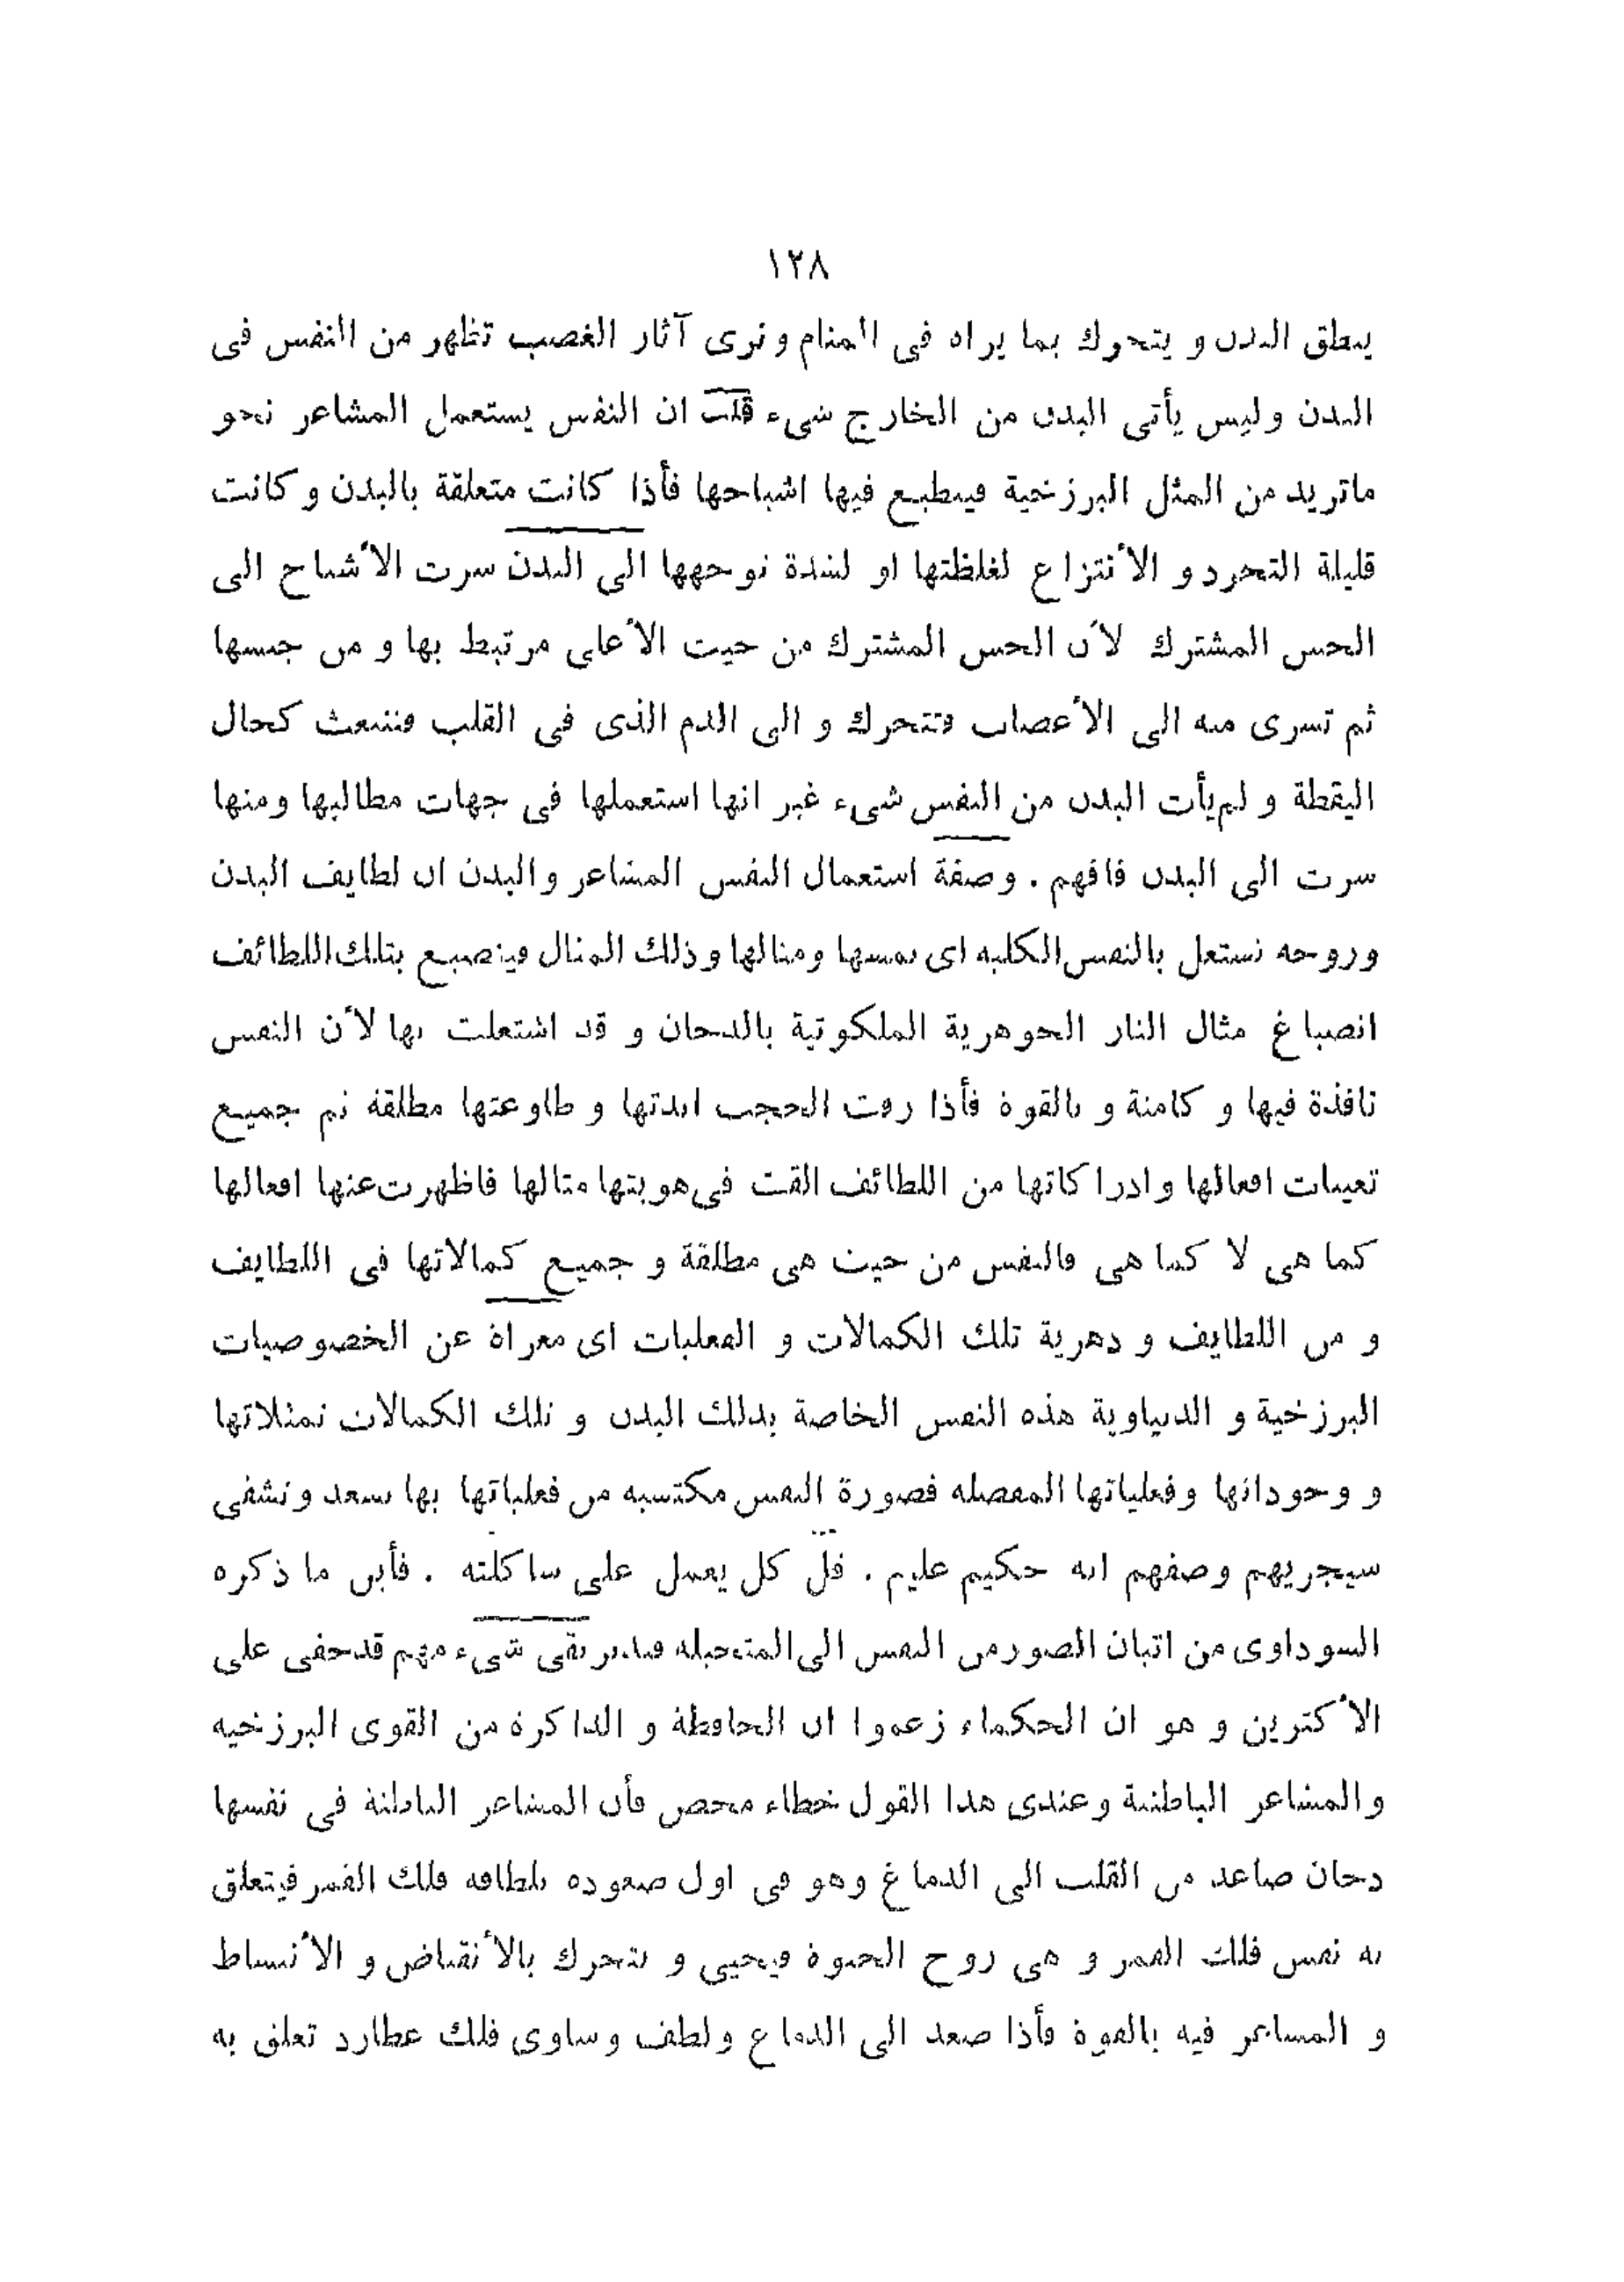 ١٢٨
ينطق البدن و يتحرك بما يراه فى المنام و نرى آثار الغضب تظهر من النفس فى
البدن وليس يأتى البدن من الخارج شىء قلت ان النفس يستعمل المشاعر نحو
ماتريد من المثل البرزخية فينطبع فيها اشباحها فأذا كانت متعلقة بالبدن و كانت
قليلة التجرد و الأنتزاع لغلظتها او لشدة توجهها الى البدن سرت الأشباح الى
الحس المشترك لأن الحس المشترك من حيث الأعلى مرتبط بها و من جنسها
ثم تسرى منه الى الأعصاب فتتحرك و الى الدم الذى فى القلب فتنبعث كحال
اليقظة و لم‌يأت البدن من النفس شىء غير انها استعملها فى جهات مطالبها ومنها
سرت الى البدن فافهم . وصفة استعمال النفس المشاعر والبدن ان لطايف البدن
وروحه تشتعل بالنفس الكلية اى بمسها ومثالها وذلك المثال فينصبغ بتلك اللطائف
انصباغ مثال النار الجوهرية الملكوتية بالدخان و قد اشتعلت بها لأن النفس
نافذة فيها و كامنة و بالقوة فأذا رقت الحجب ابدتها و طاوعتها مطلقة ثم جميع
تعينات افعالها و ادراكاتها من اللطائف القت فى هويتها مثالها فاظهرت عنها افعالها
كما هى لا كما هى فالنفس من حيث هى مطلقة و جميع كمالاتها فى اللطايف
و من اللطايف و دهرية تلك الكمالات و الفعليات اى معراة عن الخصوصيات
البرزخية و الدنياوية هذه النفس الخاصة بذلك البدن و تلك الكمالات تمثلاتها
و وجوداتها وفعلياتها المفصله فصورة النفس مكتسبه من فعلياتها بها تسعد وتشقى
سيجزيهم وصفهم انه حكيم عليم . قل كل يعمل على شاكلته . فأين ما ذكره
السوداوى من اتيان الصور من النفس الى المتخيله فتدبر بقى شىء مهم قدخفى على
الأكثرين و هو ان الحكماء زعموا ان الحافظة و الذاكرة من القوى البرزخيه
والمشاعر الباطنية وعندى هذا القول خطاء محض فأن المشاعر الباطنة فى نفسها
دخان صاعد من القلب الى الدماغ وهو فى اول صعوده بلطافه فلك القمر فيتعلق
به نفس فلك القمر و هى روح الحيوة فيحيى و يتحرك بالأنقباض و الأنبساط
و المشاعر فيه بالقوة فأذا صعد الى الدماغ ولطف وساوى فلك عطارد تعلق به